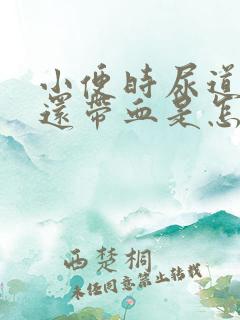 小便時尿道
還帶血是怎
西楚桐
未经同意禁止转载